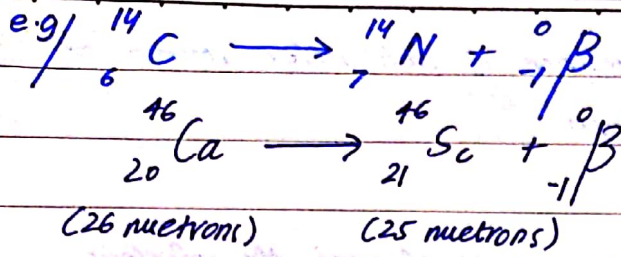 e.g/ ¹⁴₆C ⟶ ¹⁴₇N + ⁰₋₁β
⁴⁶₂₀Ca ⟶ ⁴⁶₂₁Sc + ⁰₋₁β
(26 nuetrons) (25 nuetrons)